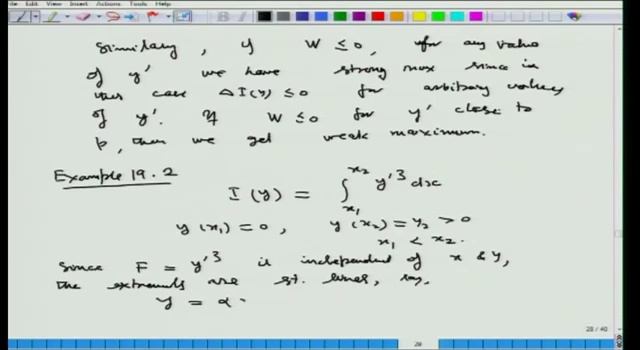 File Edit View Insert Actions Tools Help
Similarly, if W ≤ 0, for any value
of y' we have strong max since in
this case ΔI(y) ≤ 0 for arbitrary values
of y'. If W ≤ 0 for y' close to
p, then we get weak maximum.
Example 19.2
I(y) = ∫_{x₁}^{x₂} y'³ dx
y(x₁) = 0, y(x₂) = y₂ > 0
x₁ < x₂.
Since F = y'³ is independent of x & y,
the extremals are st. lines, say,
y = α
28 / 40
28